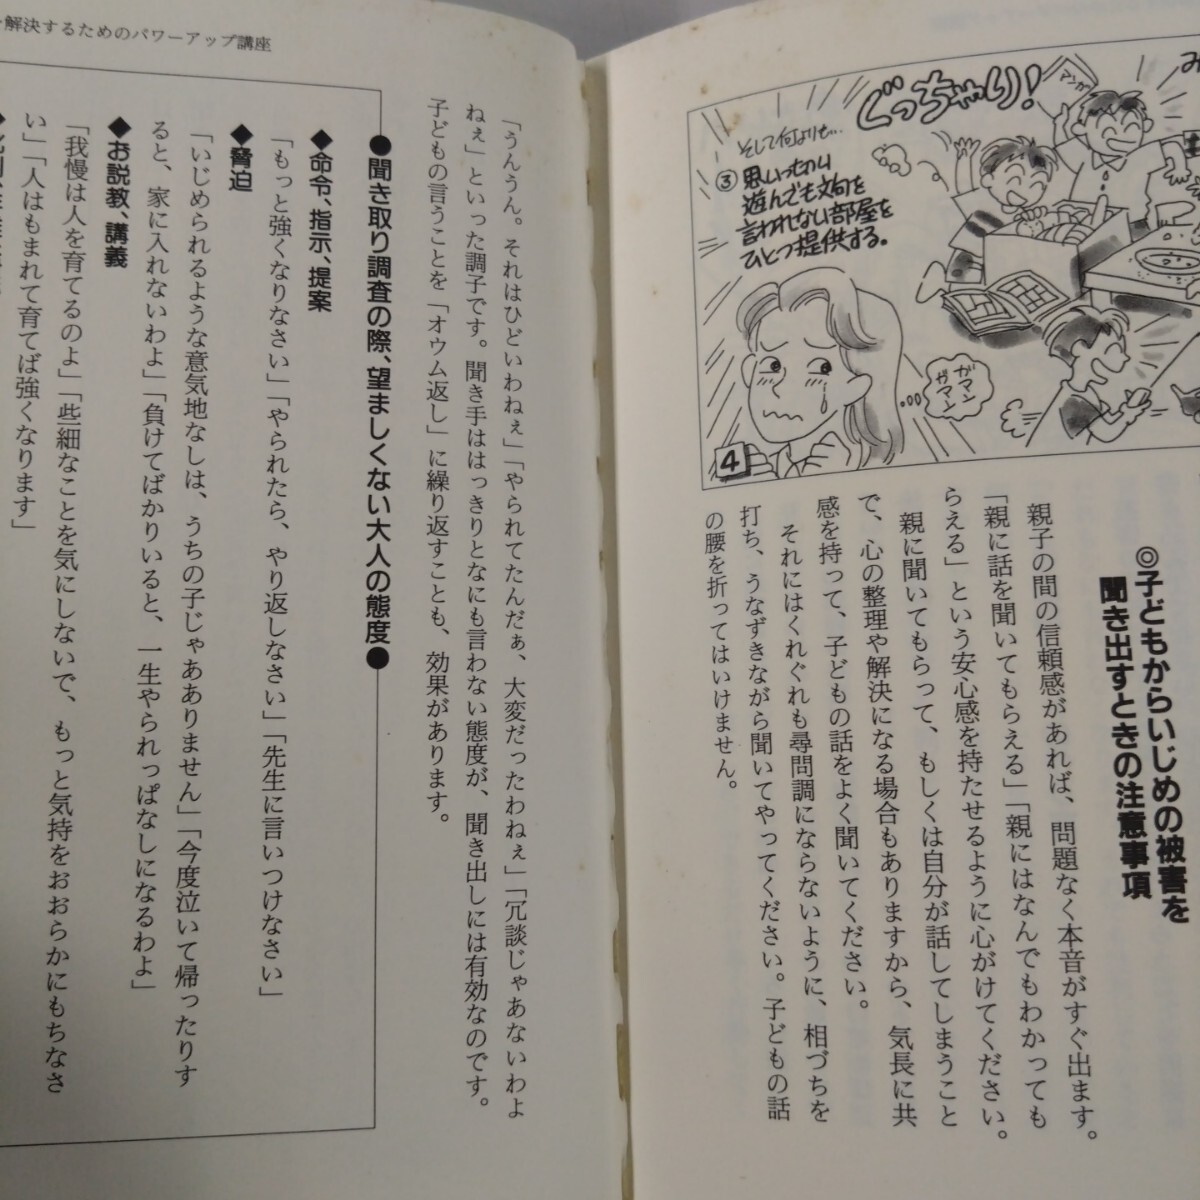 ぐっちゃり!
マンガ
そして何よりも…
③思いっきり
遊んでも文句を
言われない部屋を
ひとつ提供する。
ガマン
ガマン
4
◎子どもからいじめの被害を
聞き出すときの注意事項
親子の間の信頼感があれば、問題なく本音がすぐ出ます。
「親に話を聞いてもらえる」「親にはなんでもわかっても
らえる」という安心感を持たせるように心がけてください。
親に聞いてもらって、もしくは自分が話してしまうこと
で、心の整理や解決になる場合もありますから、気長に共
感を持って、子どもの話をよく聞いてください。
それにはくれぐれも尋問調にならないように、相づちを
打ち、うなずきながら聞いてやってください。子どもの話
の腰を折ってはいけません。
解決するためのパワーアップ講座
「うんうん。それはひどいわねぇ」「やられてたんだぁ、大変だったわねぇ」「冗談じゃあないわよ
ねぇ」といった調子です。聞き手ははっきりとなにも言わない態度が、聞き出しには有効なのです。
子どもの言うことを「オウム返し」に繰り返すことも、効果があります。
●聞き取り調査の際、望ましくない大人の態度●
◆命令、指示、提案
「もっと強くなりなさい」「やられたら、やり返しなさい」「先生に言いつけなさい」
◆脅迫
「いじめられるような意気地なしは、うちの子じゃあありません」「今度泣いて帰ったりす
ると、家に入れないわよ」「負けてばかりいると、一生やられっぱなしになるわよ」
◆お説教、講義
「我慢は人を育てるのよ」「些細なことを気にしないで、もっと気持をおおらかにもちなさ
い」「人はもまれて育てば強くなります」